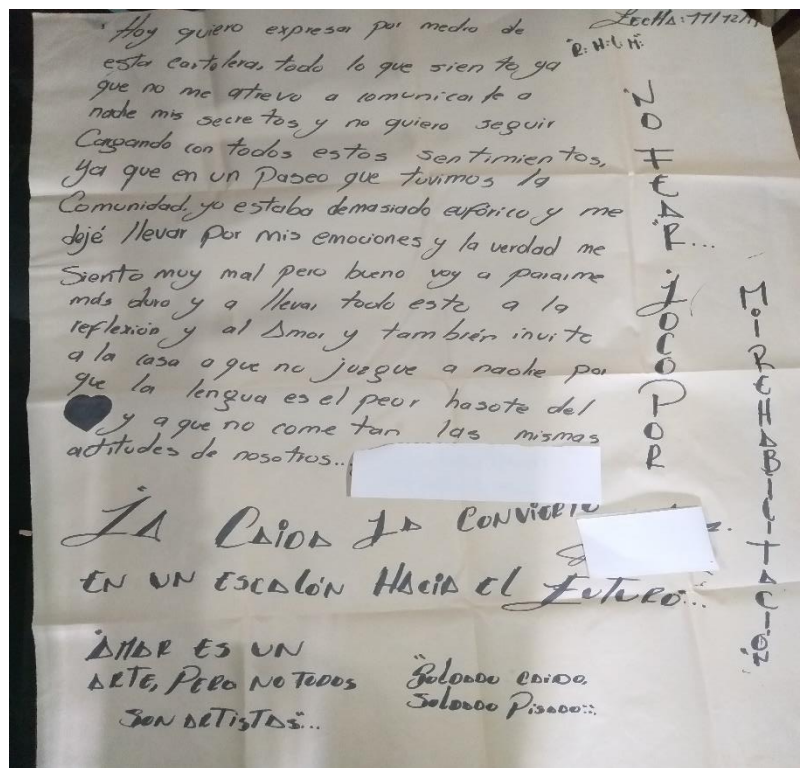 Hoy quiero expresar por medio de
FECHA: 11/12/
"R: H: L: H:"
esta cartolera, todo lo que siento ya
que no me atrevo a comunicarle a
nadie mis secretos y no quiero seguir
Cargando con todos estos sentimientos,
Ya que en un Paseo que tuvimos la
Comunidad, yo estaba demasiado eufórico y me
dejé llevar por mis emociones y la verdad me
Siento muy mal pero bueno voy a pararme
más duro y a llevar todo esto a la
reflexión y al Amor y también invito
a la casa a que no juzgue a nadie por
que la lengua es el peor hasote del
y a que no cometan las mismas
actitudes de nosotros...
LA CAIDA LA CONVIERTO
EN UN ESCALÓN HACIA EL FUTURO...
AMAR ES UN
ARTE, PERO NO TODOS
SON ARTISTAS"...
"Soldado caido,
Soldado Pisado::
NO FEAR... LOCO POR
MI REHABILITACIÓN